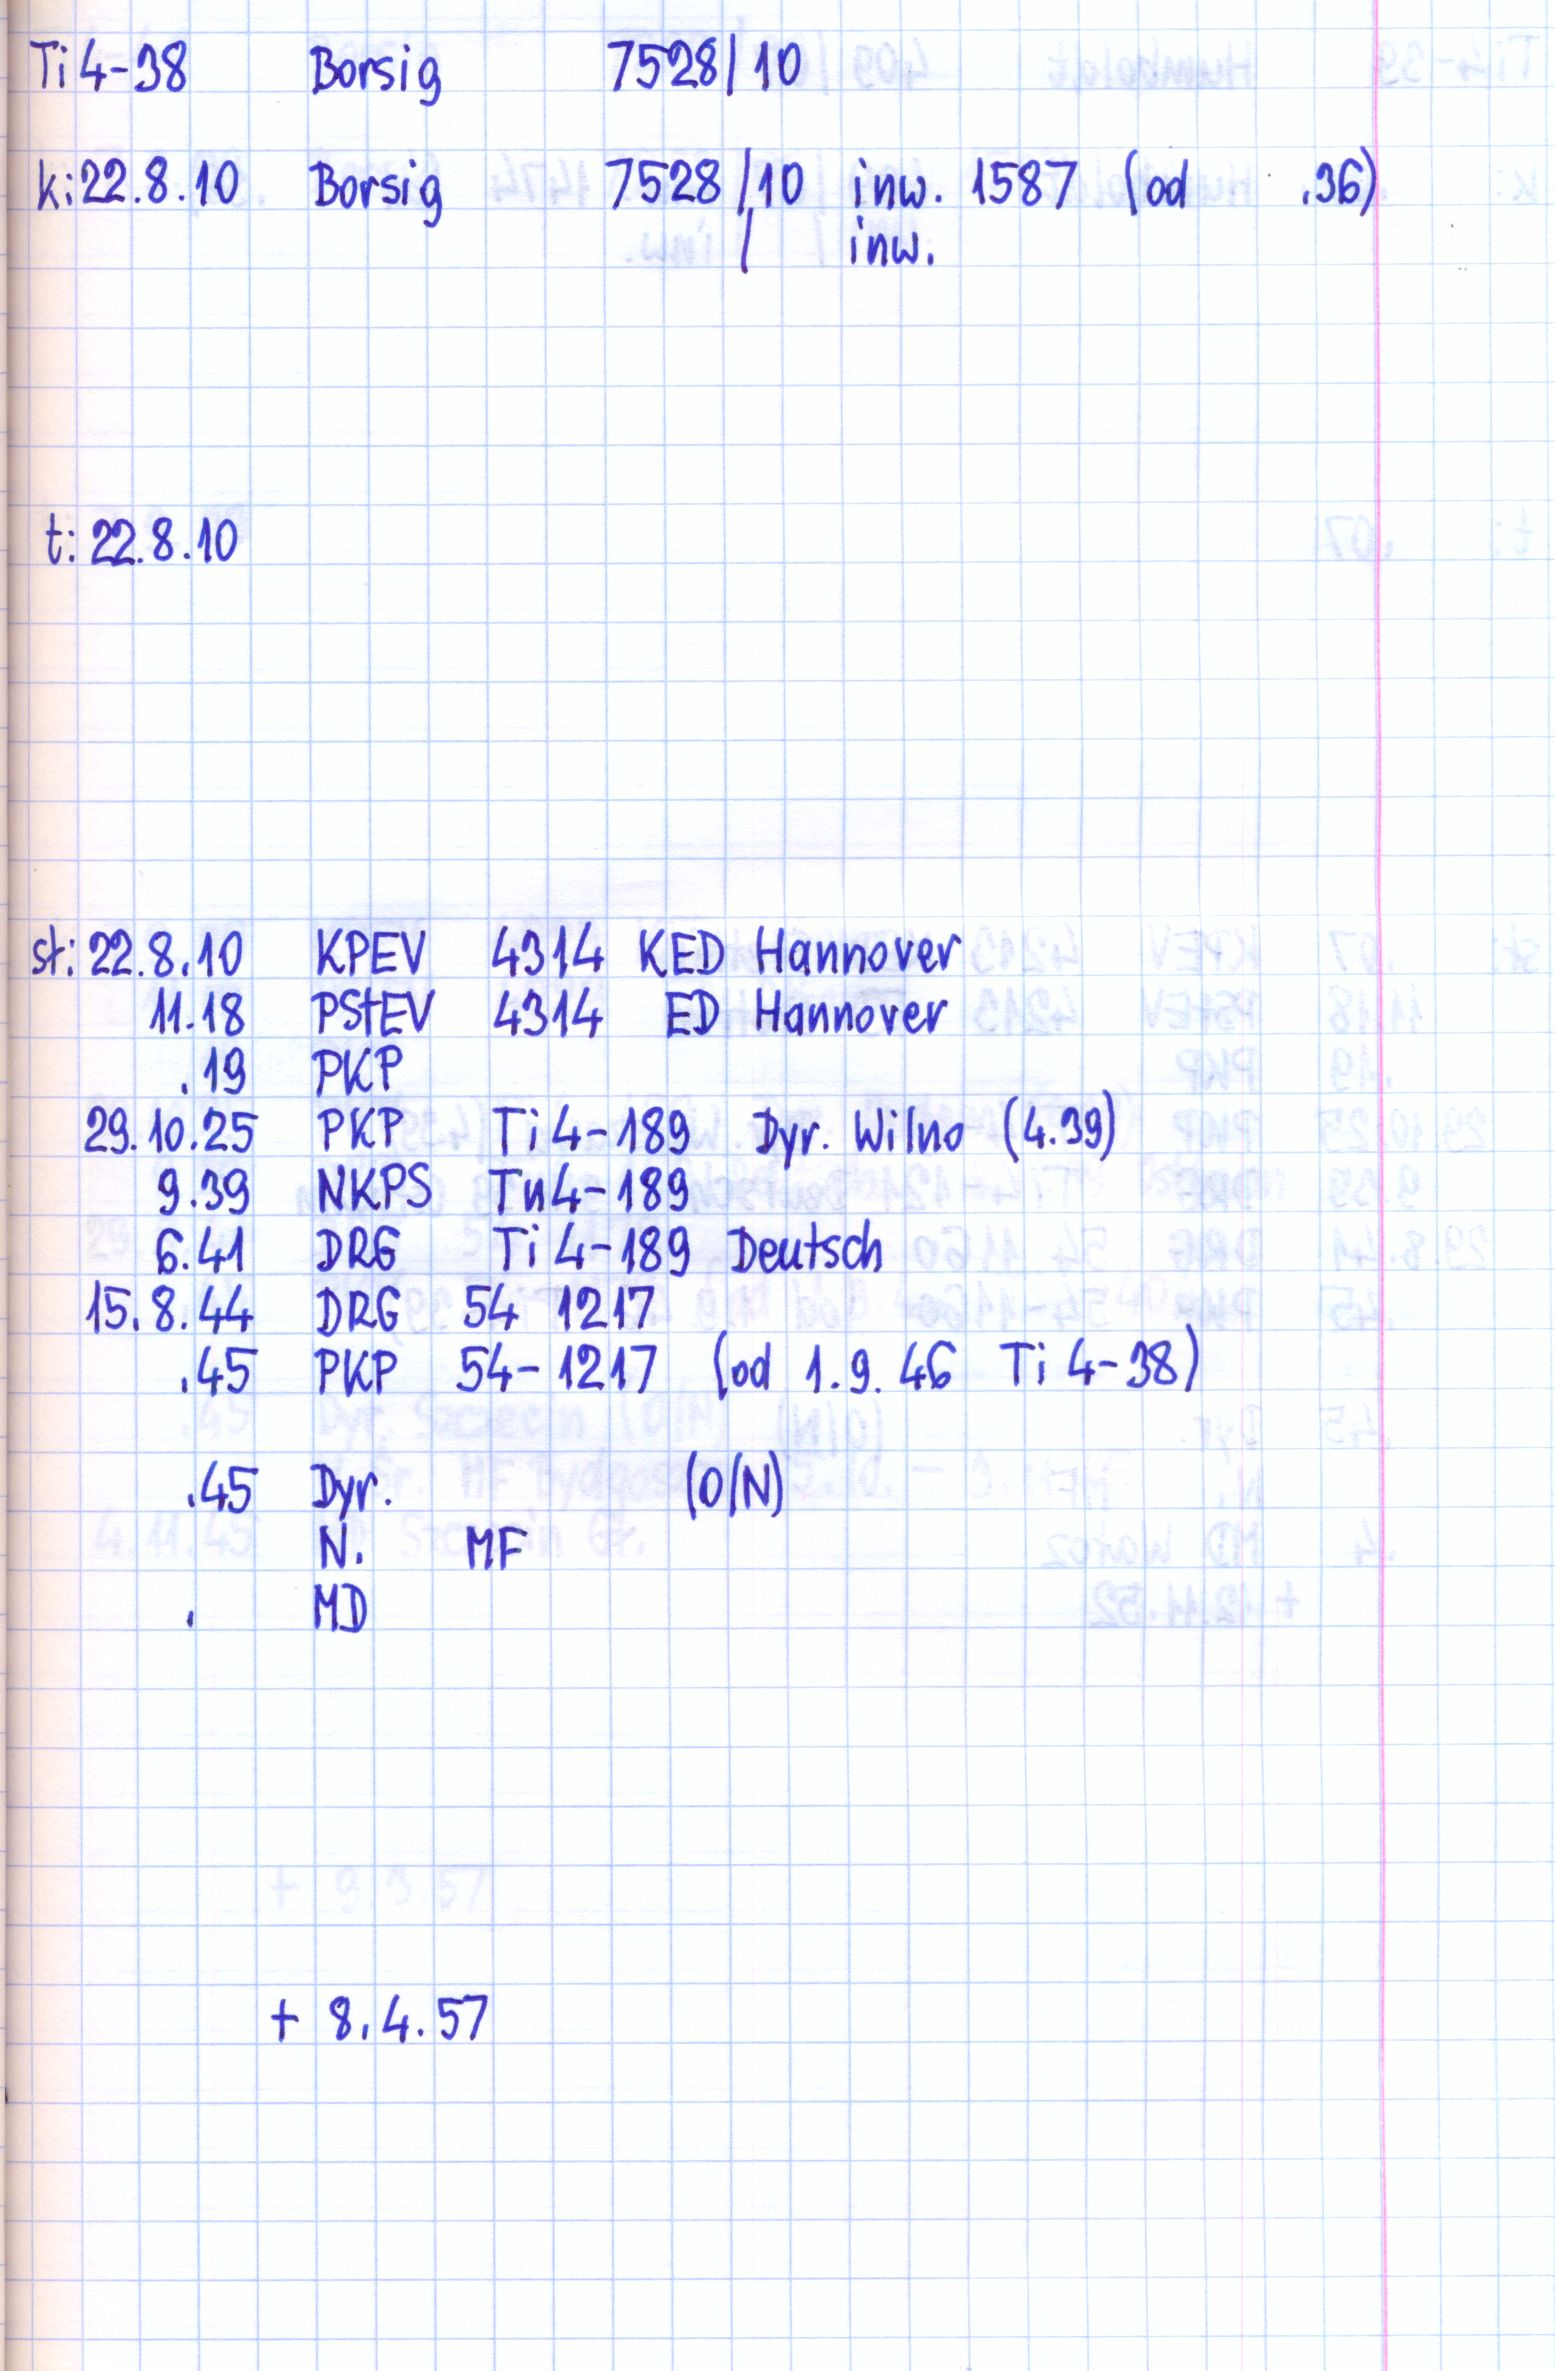 Ti4-38 Borsig 7528/10
k: 22.8.10 Borsig 7528/10 inw. 1587 (od .36)
/ inw.
t: 22.8.10
st: 22.8.10 KPEV 4314 KED Hannover
11.18 PStEV 4314 ED Hannover
.19 PKP
29.10.25 PKP Ti4-189 Dyr. Wilno (4.39)
9.39 NKPS Tu4-189
6.41 DRG Ti4-189 Deutsch
15.8.44 DRG 54 1217
.45 PKP 54-1217 (od 1.9.46 Ti4-38)
.45 Dyr. (O/N)
N. MF
. MD
+ 8.4.57